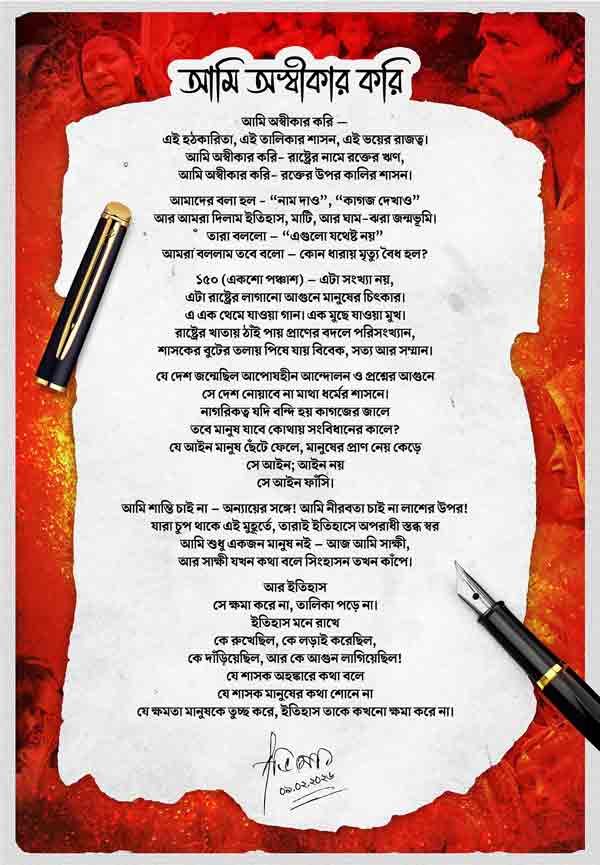 আমি অস্বীকার করি
আমি অস্বীকার করি —
এই হঠকারিতা, এই তালিকার শাসন, এই ভয়ের রাজত্ব।
আমি অস্বীকার করি- রাষ্ট্রের নামে রক্তের ঋণ,
আমি অস্বীকার করি- রক্তের উপর কালির শাসন।
আমাদের বলা হল - “নাম দাও”, “কাগজ দেখাও”
আর আমরা দিলাম ইতিহাস, মাটি, আর ঘাম-ঝরা জন্মভূমি।
তারা বললো – “এগুলো যথেষ্ট নয়”
আমরা বললাম তবে বলো – কোন ধারায় মৃত্যু বৈধ হল?
১৫০ (একশো পঞ্চাশ) – এটা সংখ্যা নয়,
এটা রাষ্ট্রের লাগানো আগুনে মানুষের চিৎকার।
এ এক থেমে যাওয়া গান। এক মুছে যাওয়া মুখ।
রাষ্ট্রের খাতায় ঠাঁই পায় প্রাণের বদলে পরিসংখ্যান,
শাসকের বুটের তলায় পিষে যায় বিবেক, সত্য আর সম্মান।
যে দেশ জন্মেছিল আপোষহীন আন্দোলন ও প্রশ্নের আগুনে
সে দেশ নোয়াবে না মাথা ধর্মের শাসনে।
নাগরিকত্ব যদি বন্দি হয় কাগজের জালে
তবে মানুষ যাবে কোথায় সংবিধানের কালে?
যে আইন মানুষ ছেঁটে ফেলে, মানুষের প্রাণ নেয় কেড়ে
সে আইন; আইন নয়
সে আইন ফাঁসি।
আমি শান্তি চাই না – অন্যায়ের সঙ্গে! আমি নীরবতা চাই না লাশের উপর!
যারা চুপ থাকে এই মুহূর্তে, তারাই ইতিহাসে অপরাধী স্তব্ধ স্বর
আমি শুধু একজন মানুষ নই – আজ আমি সাক্ষী,
আর সাক্ষী যখন কথা বলে সিংহাসন তখন কাঁপে।
আর ইতিহাস
সে ক্ষমা করে না, তালিকা পড়ে না।
ইতিহাস মনে রাখে
কে রুখেছিল, কে লড়াই করেছিল,
কে দাঁড়িয়েছিল, আর কে আগুন লাগিয়েছিল!
যে শাসক অহঙ্কারে কথা বলে
যে শাসক মানুষের কথা শোনে না
যে ক্ষমতা মানুষকে তুচ্ছ করে, ইতিহাস তাকে কখনো ক্ষমা করে না।